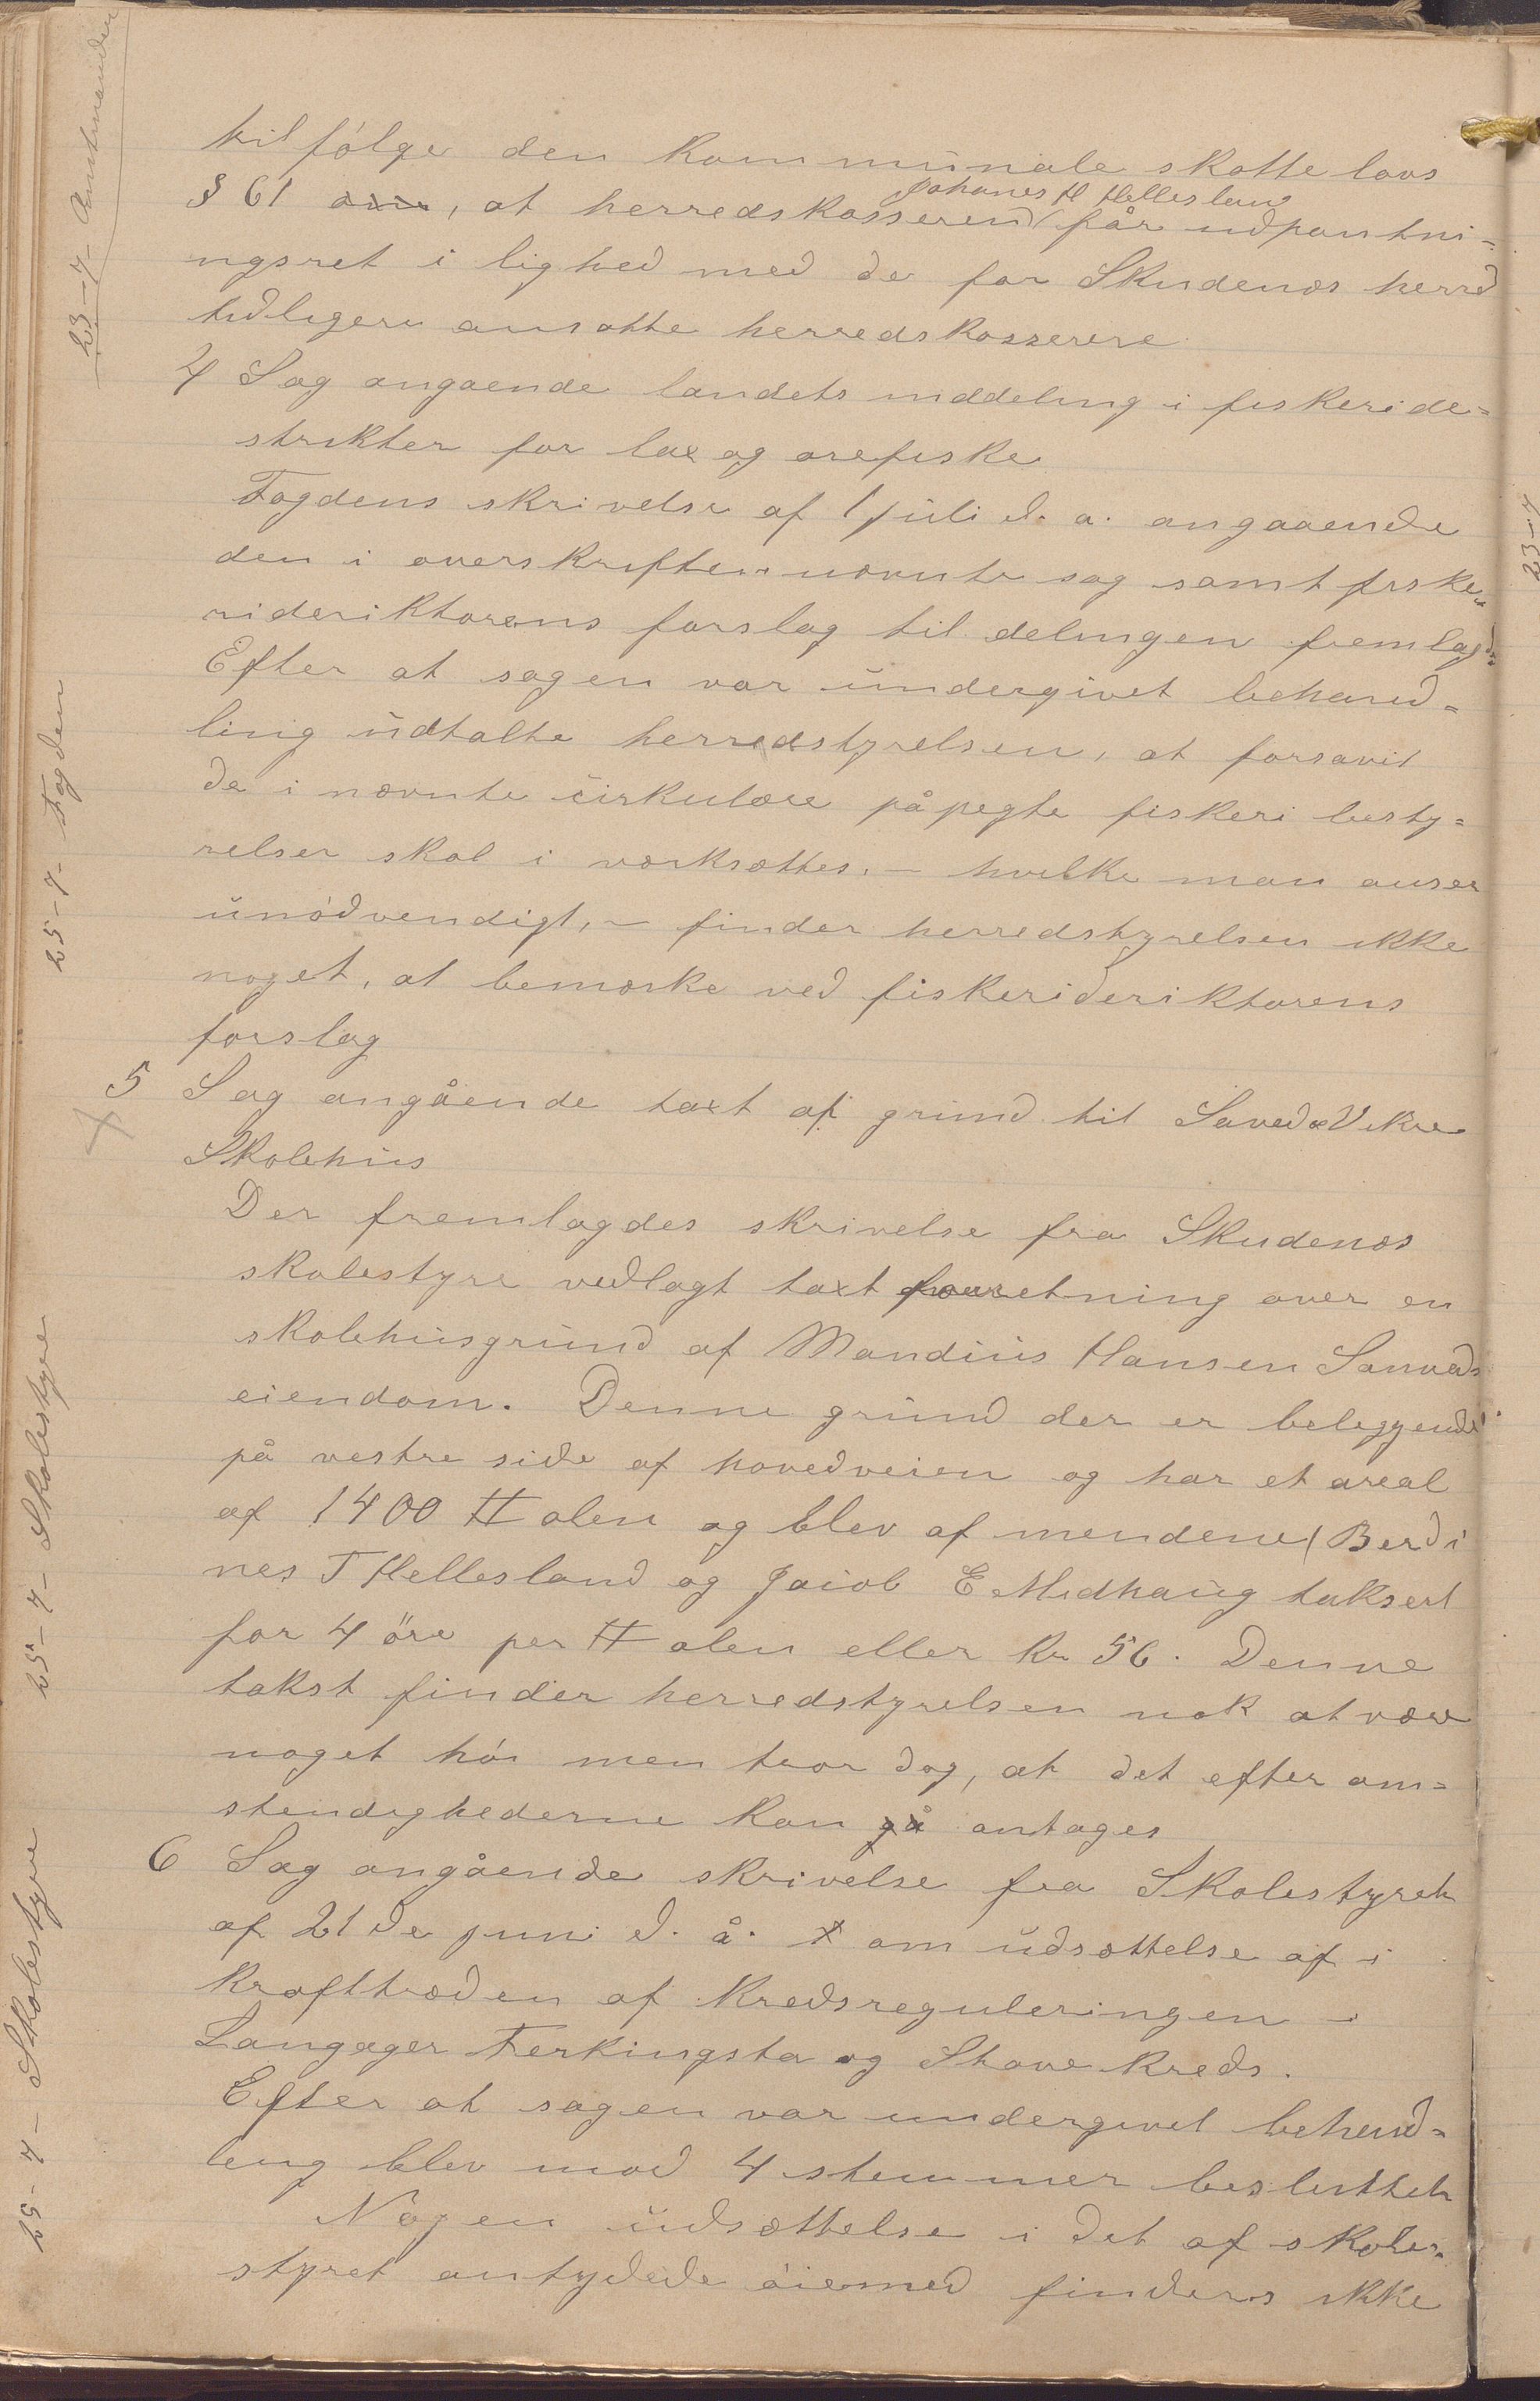 tilfölge den kommunale skatte lovs
§ 61 om, at herredskasseren Johanes H Hellesland får udpantni=
ngsret i lighed med de for Skudenæs herred
tidligere ansatte herredskasserere
4 Sag angaende landets inddeling i fiskeride=
strikter for lax og ørefiske
Fogdens skrivelse af 1 juli d. a. angaaende
den i overskriften nævnte sag samt fiske=
rideriktorens forslag til delingen fremlagdes
Efter at sagen var undergivet behand=
ling udtalte herredstyrelsen, at forsavit
de i nævnte cirkulære påpegte fiskeri besty=
relser skal i værksættes, - hvilke man anser
unödvendigt, - finder herredstyrelsen ikke
noget, at bemærke ved fiskerideriktorens
forslag
5 Sag angående taxt af grund til Saved Vikre
Skolehus
Der fremlagdes skrivelse fra Skudenæs
skolestyre vedlagt taxt forretning over en
skolehusgrund af Mandius Hansen Sanveds
eiendom. Denne grund der er beleggende
på vestre side af hovedveien og har et areal
af 1400 # alen og blev af mendene (Berdi
nes T Hellesland og Jaiob E Midhaug taksert
for 4 öre per # alen eller kr 56. Denne
takst finder herredstyrelsen nok at være
noget höi men tror dog, at det efter om=
stendighederne kan gå antages
6 Sag angående skrivelse fra Skolestyret
af 21de juni d. å. om udsættelse af i
krafttræden af kredsreguleringen i
Langåger Ferkingsta og Stave kreds.
Efter at sagen var undergivet behand=
ling blev mod 4 stemmer besluttet
Nogen udsættelse i det af skole=
styret antydede öiemed finders ikke
23-7- Amtmanden
25-7- Fogden
25-7- Skolestyre
25-7- Skolestyre
23-7